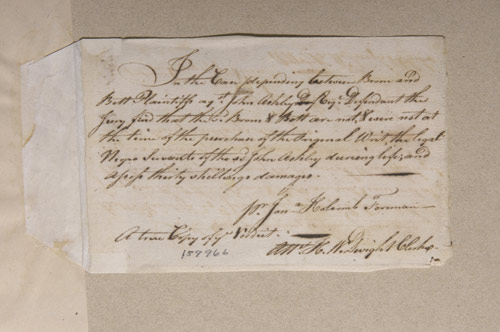 In the Case depending between Brom and
Bett Plaintiffs agt. John Ashley Esqr. Defendant the
Jury find that the sd. Brom & Bett are not, & were not at
the time of the purchase of the Original Writ, the legal
Negro Servants of the sd John Ashley during life, and
assess thirty shillings damages.
pr. Jona Holcomb Foreman
A true Copy of ye Verdict.
Attr. H. W. Dwight Clerk
159966